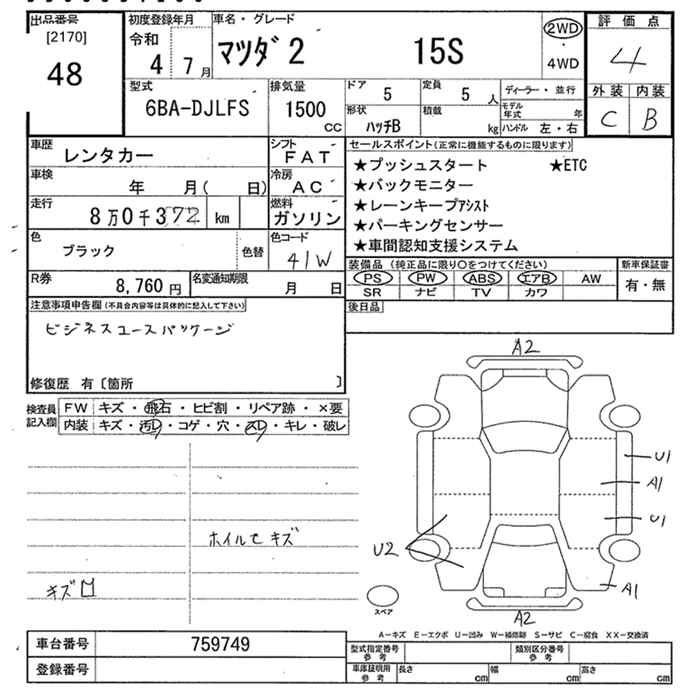 出品番号
[2170]
48
初度登録年月
令和
4 7月
車名・グレード
マツダ2 15S
2WD
・
4WD
評価点
4
外装 内装
C B
型式
6BA-DJLFS
排気量
1500
CC
ドア
5
定員
5 人
ディーラー・並行
形状
ハッチB
積載
kg
モデル年式 年
ハンドル 左・右
車歴
レンタカー
シフト
FAT
車検
年 月( 日)
冷房
AC
走行
8万0千372 km
燃料
ガソリン
色
ブラック
色替
色コード
41W
R券
8,760円
名変通知期限
月 日
セールスポイント(正常に機能するものに限ります)
★プッシュスタート ★ETC
★バックモニター
★レーンキープアシスト
★パーキングセンサー
★車間認知支援システム
装備品(純正品に限り○をつけてください)
新車保証書
PS PW ABS エアB AW
SR ナビ TV カワ
有・無
後日品
注意事項申告欄(不具合内容等は具体的に記入して下さい)
ビジネスユースパッケージ
修復歴 有〔箇所 〕
検査員記入欄
FW キズ・飛石・ヒビ割・リペア跡・×要
内装 キズ・汚レ・コゲ・穴・スレ・キレ・破レ
ホイルセキズ
キズ
A2
U1
A1
U1
U2
A1
A2
スペア
A－キズ E－エクボ U－凹み W－補修跡 S－サビ C－腐食 XX－交換済
車台番号 759749
登録番号
型式指定番号参考
類別区分番号参考
車庫証明用参考
長さ cm
幅 cm
高さ cm